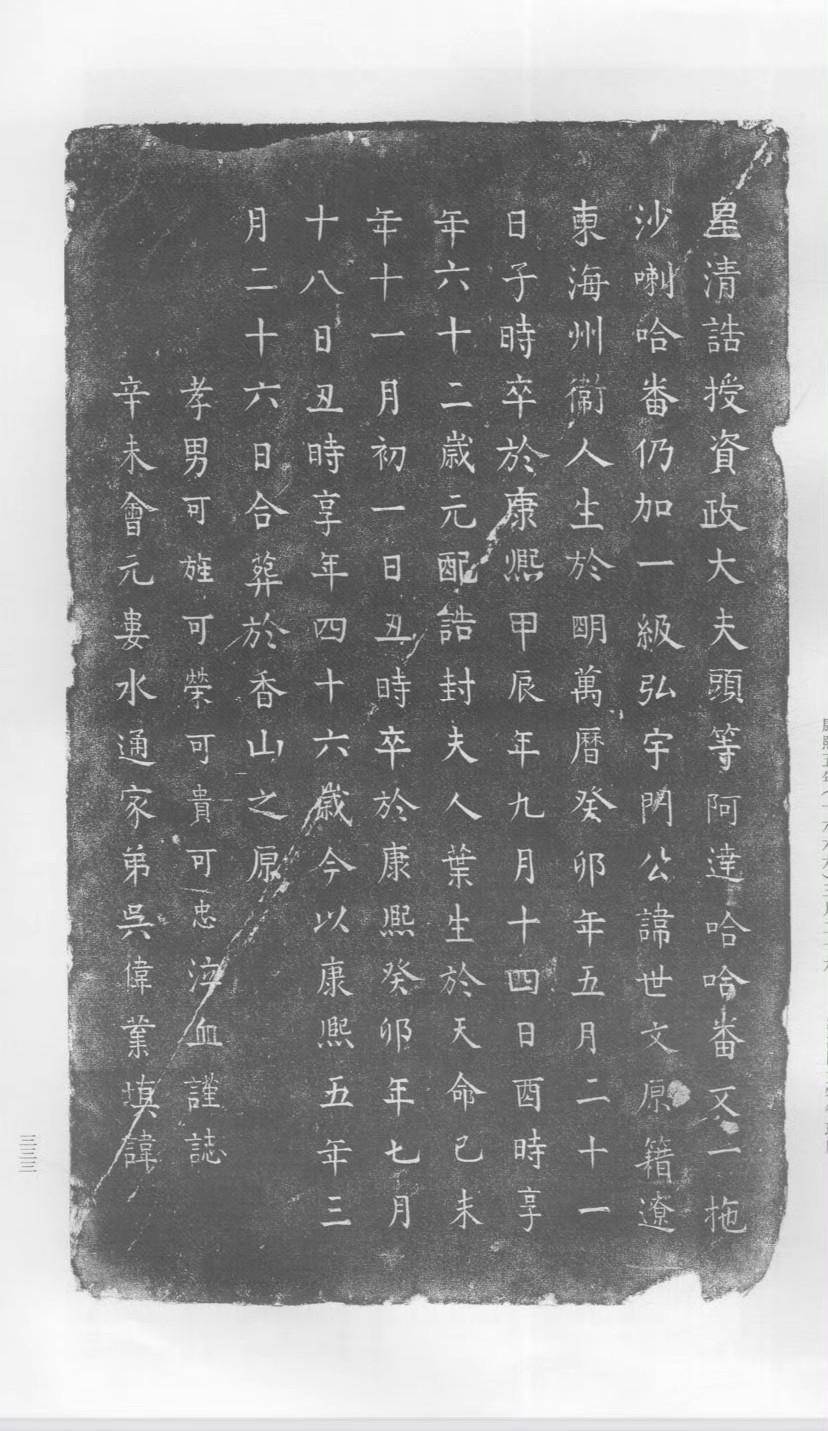 皇清誥授資政大夫頭等阿達哈哈番又一拖
沙喇哈番仍加一級弘宇閃公諱世文原籍遼
東海州衛人生於明萬曆癸卯年五月二十一
日子時卒於康熙甲辰年九月十四日酉時享
年六十二歲元配誥封夫人葉生於天命己未
年十一月初一日丑時卒於康熙癸卯年七月
十八日丑時享年四十六歲今以康熙五年三
月二十六日合葬於香山之原
孝男可旌可榮可貴可忠泣血謹誌
辛未會元婁水通家弟吳偉業填諱
三三三